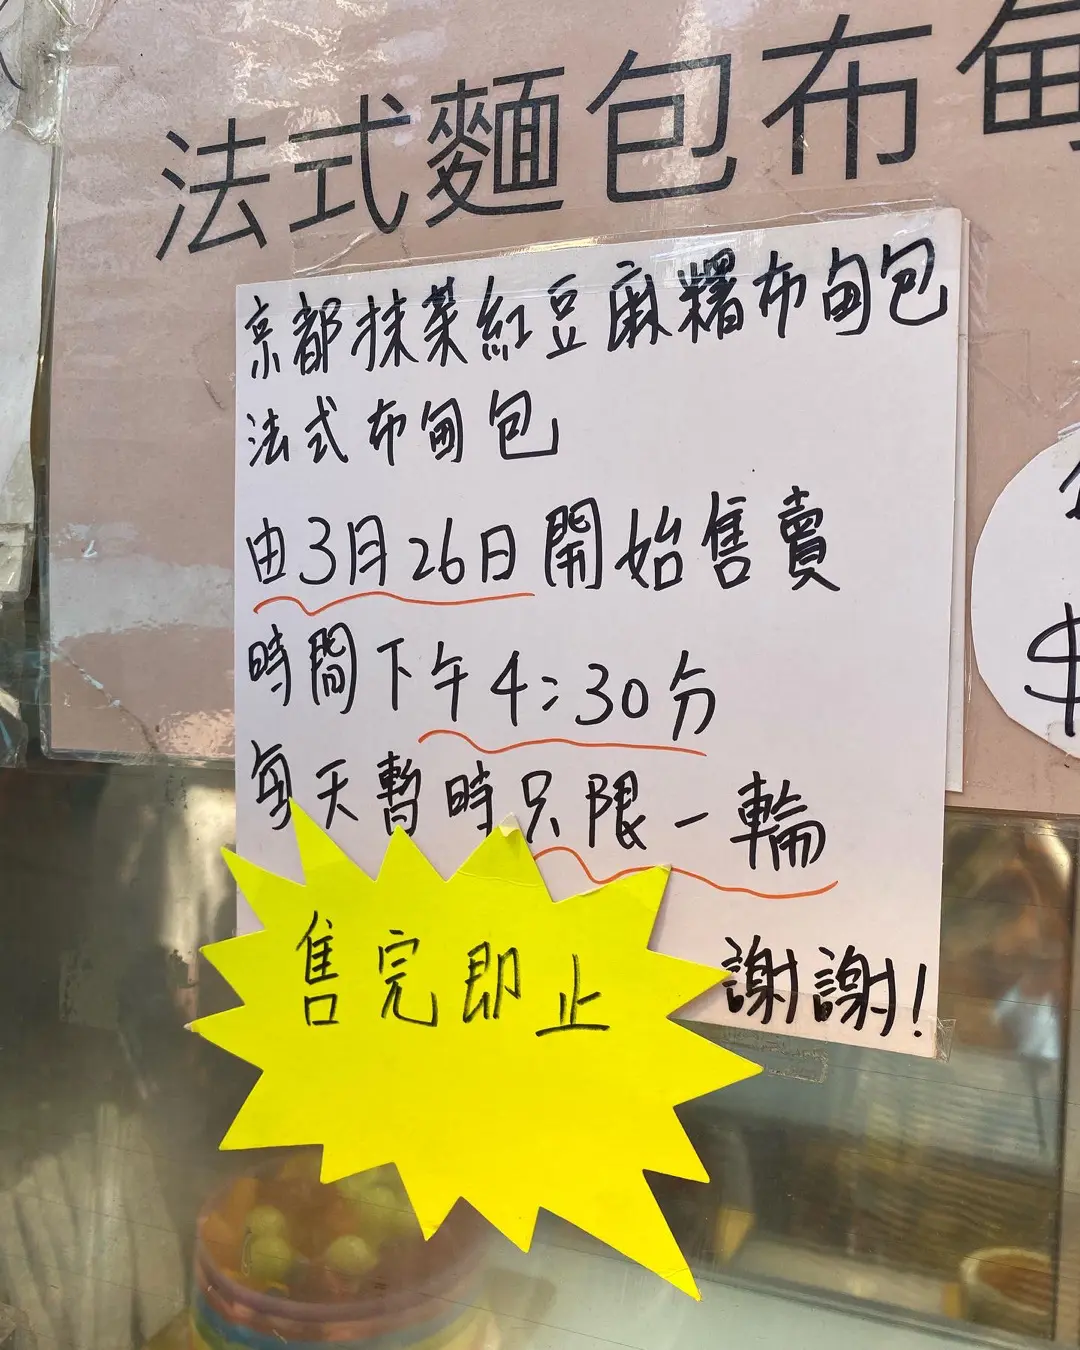 法式麵包布甸
京都抹茶紅豆麻糬布甸包
法式布甸包
由3月26日開始售賣
時間下午4:30分
每天暫時只限一輪
售完即止
謝謝!
$